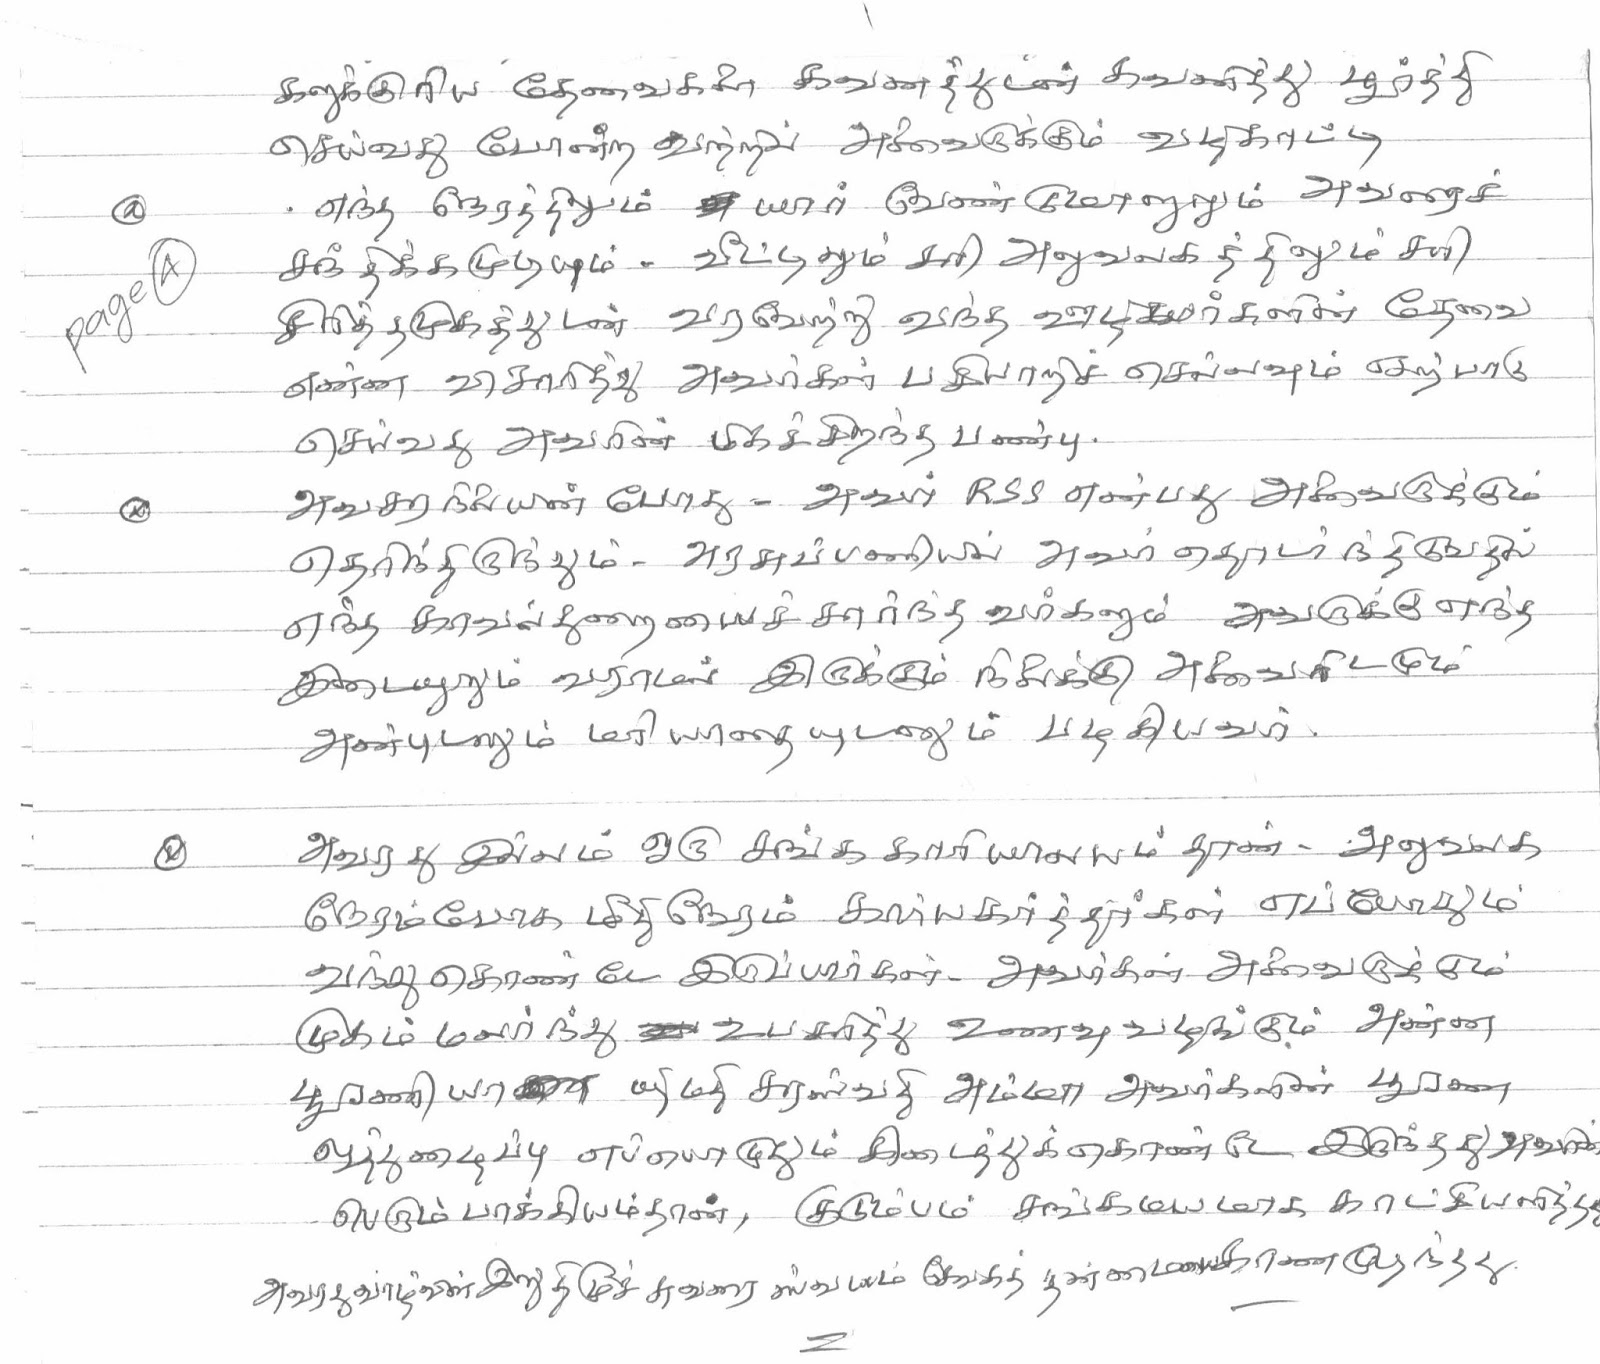 களுக்குரிய தேவைகளை கவனத்துடன் கவனித்து பூர்த்தி
செய்வது போன்றவற்றில் அனைவருக்கும் வழிகாட்டி
எந்த நேரத்திலும் யார் வேண்டுமானாலும் அவரைச்
page A சந்திக்கமுடியும் - வீட்டிலும் சரி அலுவலகத்திலும் சரி
சிரித்தமுகத்துடன் வரவேற்று வந்த ஊழியர்களின் தேவை
என்ன விசாரித்து அவர்கள் பசியாறிச் செல்லவும் ஏற்பாடு
செய்வது அவரின் மிகச்சிறந்த பண்பு.
அவசரநிலையின் போது - அவர் RSS என்பது அனைவருக்கும்
தெரிந்திருந்தும் - அரசுப்பணியில் அவர் தொடர்ந்திருப்பதில்
எந்த காவல்துறையைச் சார்ந்தவர்களும் அவருக்கு எந்த
இடையூறும் வராமல் இருக்கும் நிலைக்கு அனைவரிடமும்
அன்புடனும் மரியாதையுடனும் பழகியவர்.
அவரது இல்லம் ஒரு சங்க காரியாலயம் தான் - அலுவலக
நேரம்போக மீதிநேரம் கார்யகர்த்தர்கள் எப்போதும்
வந்துகொண்டே இருப்பார்கள் - அவர்கள் அனைவருக்கும்
முகம் மலர்ந்து உபசரித்து உணவு வழங்கும் அன்ன
பூரணியா திருமதி சரஸ்வதி அம்மா அவர்களின் பூரண
ஒத்துழைப்பு எப்பொழுதும் கிடைத்துக்கொண்டே இருந்தது அவரின்
பெரும் பாக்கியம்தான், குடும்பம் சங்கமயமாக காட்சியளித்தது
அவரது வாழ்வின் இறுதி மூச்சுவரை ஸ்வயம் சேவகத் தன்மை